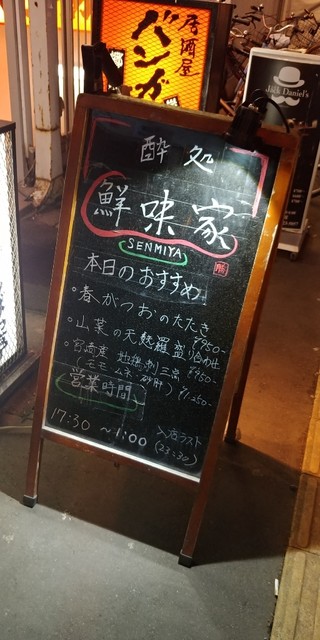 居酒屋
バンガ
Jack Daniel's
酔処
鮮味家
SENMIYA
本日のおすすめ
○春がつおのたたき ¥950-
○山菜の天麩羅盛り合わせ ¥950-
○宮崎産 地鶏刺三点
(モモ ムネ 砂肝) ¥1,250-
営業時間
17:30 ~1:00
入店ラスト
(23:30)